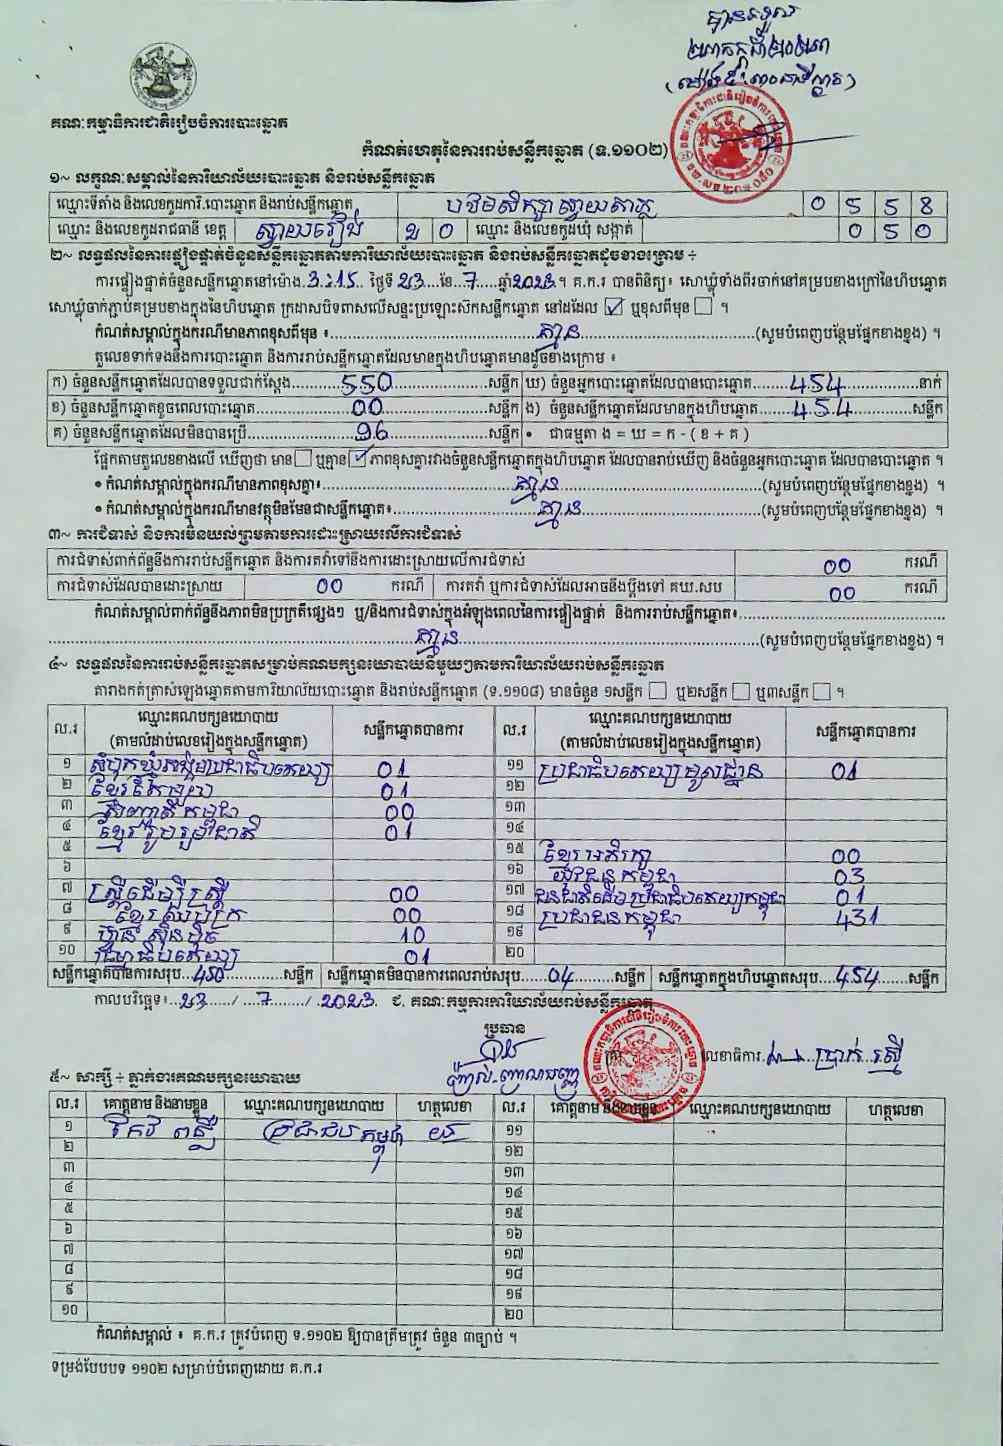 បានទទួល
គណៈកម្មាធិការជាតិរៀបចំការបោះឆ្នោត
កំណត់ហេតុនៃការរាប់សន្លឹកឆ្នោត (ទ.១១០២)
១~ លក្ខណៈសម្គាល់នៃការិយាល័យបោះឆ្នោត និងរាប់សន្លឹកឆ្នោត
ឈ្មោះទីតាំង និងលេខកូដការិ.បោះឆ្នោត និងរាប់សន្លឹកឆ្នោត បឋមសិក្សាស្វាយតាត្ត 0 5 5 8
ឈ្មោះ និងលេខកូដរាជធានី ខេត្ត ស្វាយរៀង 2 0 ឈ្មោះ និងលេខកូដឃុំ សង្កាត់ 0 5 0
២~ លទ្ធផលនៃការផ្ទៀងផ្ទាត់ចំនួនសន្លឹកឆ្នោតតាមការិយាល័យបោះឆ្នោត និងរាប់សន្លឹកឆ្នោតដូចខាងក្រោម ÷
ការផ្ទៀងផ្ទាត់ចំនួនសន្លឹកឆ្នោតនៅម៉ោង 3:15 ថ្ងៃទី 23 ខែ 7 ឆ្នាំ 2023 ។ គ.ក.រ បានពិនិត្យ៖ សោឃ្លុំទាំងពីរចាក់នៅគម្របខាងក្រៅនៃហិបឆ្នោត
សោឃ្លុំចាក់ភ្ជាប់គម្របខាងក្នុងនៃហិបឆ្នោត ក្រដាសបិទពាសលើសន្ទះប្រឡោះស៊កសន្លឹកឆ្នោត នៅដដែល ☑ ឬខុសពីមុន ☐ ។
កំណត់សម្គាល់ក្នុងករណីមានភាពខុសពីមុន ៖ គ្មាន (សូមបំពេញបន្ថែមផ្នែកខាងខ្នង) ។
តួលេខទាក់ទងនឹងការបោះឆ្នោត និងការរាប់សន្លឹកឆ្នោតដែលមានក្នុងហិបឆ្នោតមានដូចខាងក្រោម ៖
ក) ចំនួនសន្លឹកឆ្នោតដែលបានទទួលជាក់ស្តែង 550 សន្លឹក ឃ) ចំនួនអ្នកបោះឆ្នោតដែលបានបោះឆ្នោត 454 នាក់
ខ) ចំនួនសន្លឹកឆ្នោតខូចពេលបោះឆ្នោត 00 សន្លឹក ង) ចំនួនសន្លឹកឆ្នោតដែលមានក្នុងហិបឆ្នោត 454 សន្លឹក
គ) ចំនួនសន្លឹកឆ្នោតដែលមិនបានប្រើ 96 សន្លឹក • ជាធម្មតា ង = ឃ = ក - ( ខ + គ )
ផ្អែកតាមតួលេខខាងលើ ឃើញថា មាន ☐ ឬគ្មាន ☑ ភាពខុសគ្នារវាងចំនួនសន្លឹកឆ្នោតក្នុងហិបឆ្នោត ដែលបានរាប់ឃើញ និងចំនួនអ្នកបោះឆ្នោត ដែលបានបោះឆ្នោត ។
• កំណត់សម្គាល់ក្នុងករណីមានភាពខុសគ្នា៖ គ្មាន (សូមបំពេញបន្ថែមផ្នែកខាងខ្នង) ។
• កំណត់សម្គាល់ក្នុងករណីមានវត្ថុមិនមែនជាសន្លឹកឆ្នោត៖ គ្មាន (សូមបំពេញបន្ថែមផ្នែកខាងខ្នង) ។
៣~ ការជំទាស់ និងការមិនយល់ព្រមតាមការដោះស្រាយលើការជំទាស់
ការជំទាស់ពាក់ព័ន្ធនឹងការរាប់សន្លឹកឆ្នោត និងការតវ៉ាទៅនឹងការដោះស្រាយលើការជំទាស់ 00 ករណី
ការជំទាស់ដែលបានដោះស្រាយ 00 ករណី ការតវ៉ា ឬការជំទាស់ដែលអាចនឹងប្តឹងទៅ គឃ.សប 00 ករណី
កំណត់សម្គាល់ពាក់ព័ន្ធនឹងភាពមិនប្រក្រតីផ្សេងៗ ឬ/និងការជំទាស់ក្នុងអំឡុងពេលនៃការផ្ទៀងផ្ទាត់ និងការរាប់សន្លឹកឆ្នោត៖
គ្មាន (សូមបំពេញបន្ថែមផ្នែកខាងខ្នង) ។
៤~ លទ្ធផលនៃការរាប់សន្លឹកឆ្នោតសម្រាប់គណបក្សនយោបាយនីមួយៗតាមការិយាល័យរាប់សន្លឹកឆ្នោត
តារាងកត់ត្រាសំឡេងឆ្នោតតាមការិយាល័យបោះឆ្នោត និងរាប់សន្លឹកឆ្នោត (ទ.១១០៨) មានចំនួន ១សន្លឹក ☐ ឬ២សន្លឹក ☐ ឬ៣សន្លឹក ☐ ។
ល.រ ឈ្មោះគណបក្សនយោបាយ សន្លឹកឆ្នោតបានការ ល.រ ឈ្មោះគណបក្សនយោបាយ សន្លឹកឆ្នោតបានការ
(តាមលំដាប់លេខរៀងក្នុងសន្លឹកឆ្នោត) (តាមលំដាប់លេខរៀងក្នុងសន្លឹកឆ្នោត)
១ សំបុកឃ្មុំសង្គមប្រជាធិបតេយ្យ 01 ១១ ប្រជាធិបតេយ្យមូលដ្ឋាន 01
២ ខ្មែរតែមួយ 01 ១២
៣ សញ្ជាតិកម្ពុជា 00 ១៣
៤ ខ្មែររួបរួមជាតិ 01 ១៤
៥ ១៥ ខ្មែរអភិរក្ស 00
៦ ១៦ យុវជនកម្ពុជា 03
៧ ស្ត្រីដើម្បីស្ត្រី 00 ១៧ ជនជាតិដើមប្រជាធិបតេយ្យកម្ពុជា 01
៨ ខ្មែរឈប់ក្រ 00 ១៨ ប្រជាជនកម្ពុជា 431
៩ ហ្វ៊ុនស៊ិនប៉ិច 10 ១៩
១០ ធម្មាធិបតេយ្យ 01 ២០
សន្លឹកឆ្នោតបានការសរុប 450 សន្លឹក សន្លឹកឆ្នោតមិនបានការពេលរាប់សរុប 04 សន្លឹក សន្លឹកឆ្នោតក្នុងហិបឆ្នោតសរុប 454 សន្លឹក
កាលបរិច្ឆេទ៖ 23 / 7 / 2023 ជ. គណៈកម្មការការិយាល័យរាប់សន្លឹកឆ្នោត
ប្រធាន
លេខាធិការ ប្រាក់ រស្មី
៥~ សាក្សី ÷ ភ្នាក់ងារគណបក្សនយោបាយ
ល.រ គោត្តនាម និងនាមខ្លួន ឈ្មោះគណបក្សនយោបាយ ហត្ថលេខា ល.រ គោត្តនាម និងនាមខ្លួន ឈ្មោះគណបក្សនយោបាយ ហត្ថលេខា
១ កែវ ពន្លឺ ប្រជាជនកម្ពុជា ១១
២ ១២
៣ ១៣
៤ ១៤
៥ ១៥
៦ ១៦
៧ ១៧
៨ ១៨
៩ ១៩
១០ ២០
កំណត់សម្គាល់ ៖ គ.ក.រ ត្រូវបំពេញ ទ.១១០២ ឱ្យបានត្រឹមត្រូវ ចំនួន ៣ច្បាប់ ។
ទម្រង់បែបបទ ១១០២ សម្រាប់បំពេញដោយ គ.ក.រ